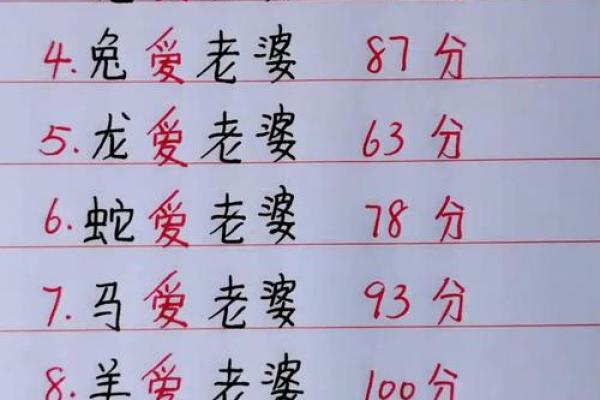 4.兔爱老婆 87分
5.龙爱老婆 63分
6.蛇爱老婆 78分
7.马爱老婆 93分
8.羊爱老婆 100分